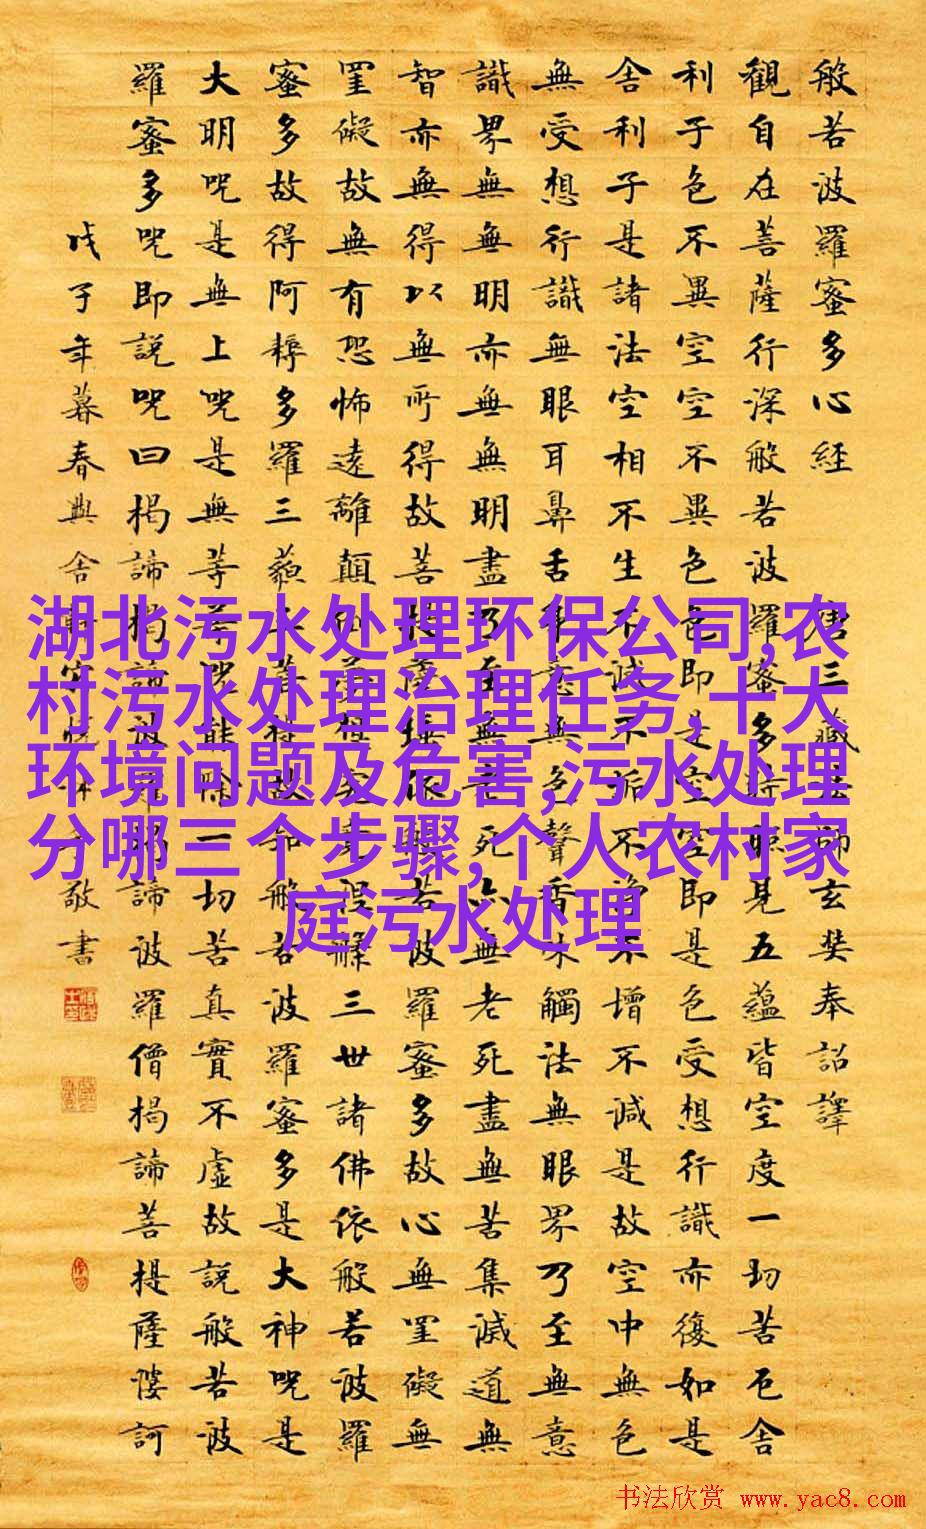 般若波羅蜜多心經 唐三藏法師玄奘奉詔譯
觀自在菩薩行深般若波羅蜜多時照見五蘊皆空度一切苦厄舍
利子色不異空空不異色色即是空空即是色受想行識亦復如是
舍利子是諸法空相不生不滅不垢不淨不增不減是故空中無色
無受想行識無眼耳鼻舌身意無色聲香味觸法無眼界乃至無意
識界無無明亦無無明盡乃至無老死亦無老死盡無苦集滅道無
智亦無得以無所得故菩提薩埵依般若波羅蜜多故心無罣礙無
罣礙故無有恐怖遠離顛倒夢想究竟涅槃三世諸佛依般若波羅
蜜多故得阿耨多羅三藐三菩提故知般若波羅蜜多是大神咒是
大明咒是無上咒是無等等咒能除一切苦真實不虛故說般若波
羅蜜多咒即說咒曰揭諦揭諦波羅揭諦波羅僧揭諦菩提薩婆訶
戊子年暮春 敬書
湖北污水处理环保公司,农
村污水处理治理任务,十大
环境问题及危害,污水处理
分哪三个步骤,个人农村家
庭污水处理
书法欣赏 www.yac8.com